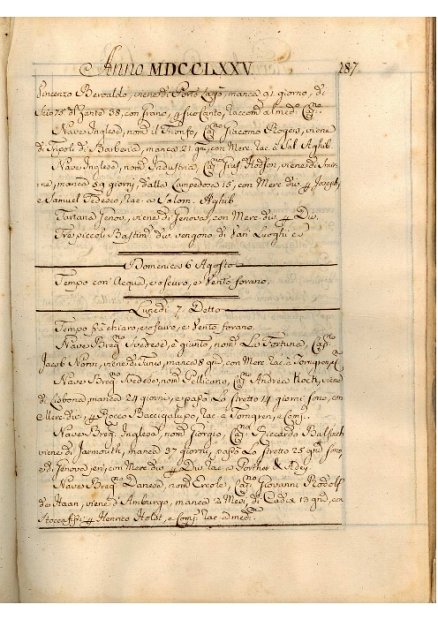 Anno MDCCLXXV. 187
Vincenzo Beroaldo, viene di Porto Lagò, manca 91 giorno, di
di Zante 38, con Grano, q suo Conto, raccom al med.
Nave Inglese, nom il Trionfo, Cap Giacomo Rogers, viene
di Tripoli di Barberia, manca 21 gni, con Merc. rac à Sal Aghib
Nave Inglese, nom Industria, Cap Gius Hodson, viene di Smir
ne, manca 59 giorni, dalla Lampedosa 15, con Merc div 4 Joseph,
e Samuel Tedesco, rac à Salom. Aghib
Tartana Genov, viene di Genova, con Merc div 4 Div.
Tre piccoli Bastim div vengono di Vari Luoghi &
Domenica 6 Agosto
Tempo con Acqua, e oscuro, e Vento forano.
Lunedì 7 Detto
Tempo frà chiaro, e oscuro, e Vento forano
Nave Brig Svedese, è giunto, nom La Fortuna, Cap
Jacob Norin, viene di Tunis, manca 8 gni, con Merc rac à
Nave Brig Svedese, nom Pellicano, Cap Andrea Koch, viene
di Lisbona, manca 24 giorni, e passò Lo stretto 14 giorni sono, con
Merc div 4 Rocco Baccigalupo, rac à Tomgren, e Comp.
Nave Brig Inglese, nom Giorgio, Cap Ricardo
viene di Jarmouth, manca 37 giorni, passò Lo stretto 25 gni sono
e di Genova jeri, con Merc div 4 Div rac à Porther & Adey
Nave Brig Danese, nom Ercole, Cap Giovanni Rodolf
de Haan, viene d'Amburgo, manca 2 Mesi, di Cadice 13 gni, con
4 Henrico Holst, e Comp rac ad med.